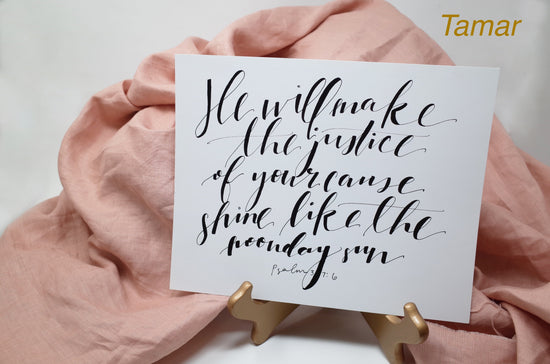 Tamar
He will make
the justice
of your cause
shine like the
noonday sun
Psalm 37:6